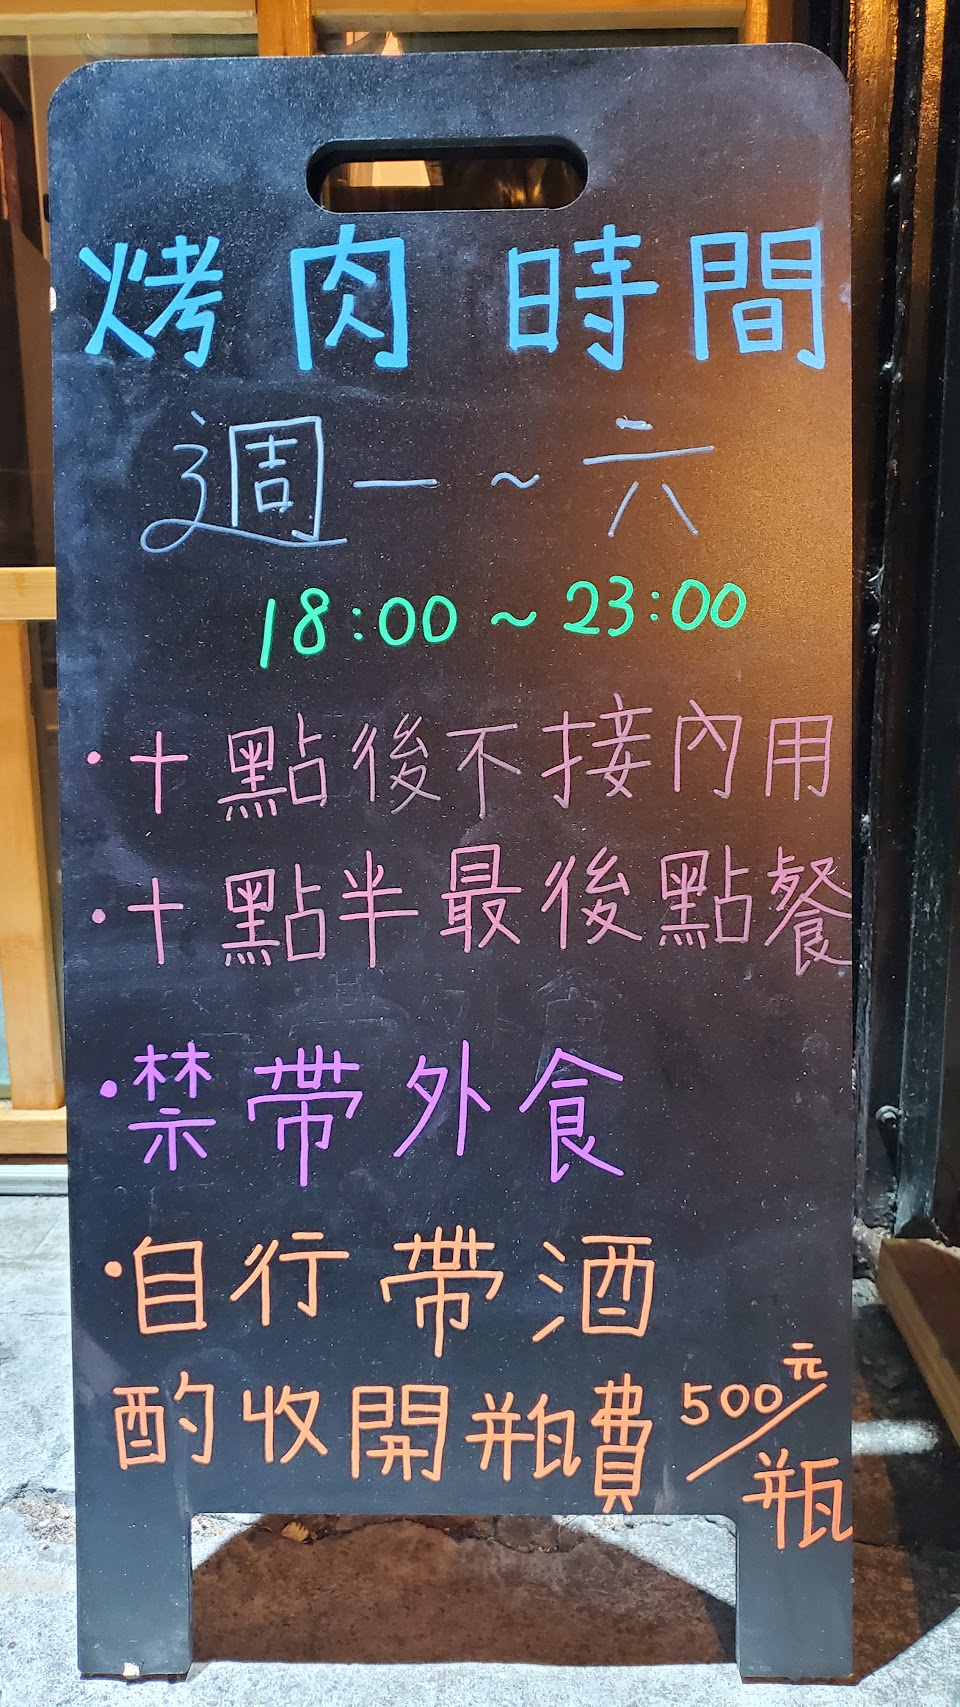 烤肉時間
週一~六
18:00~23:00
·十點後不接內用
·十點半最後點餐
·禁帶外食
·自行帶酒
酌收開瓶費500元/瓶